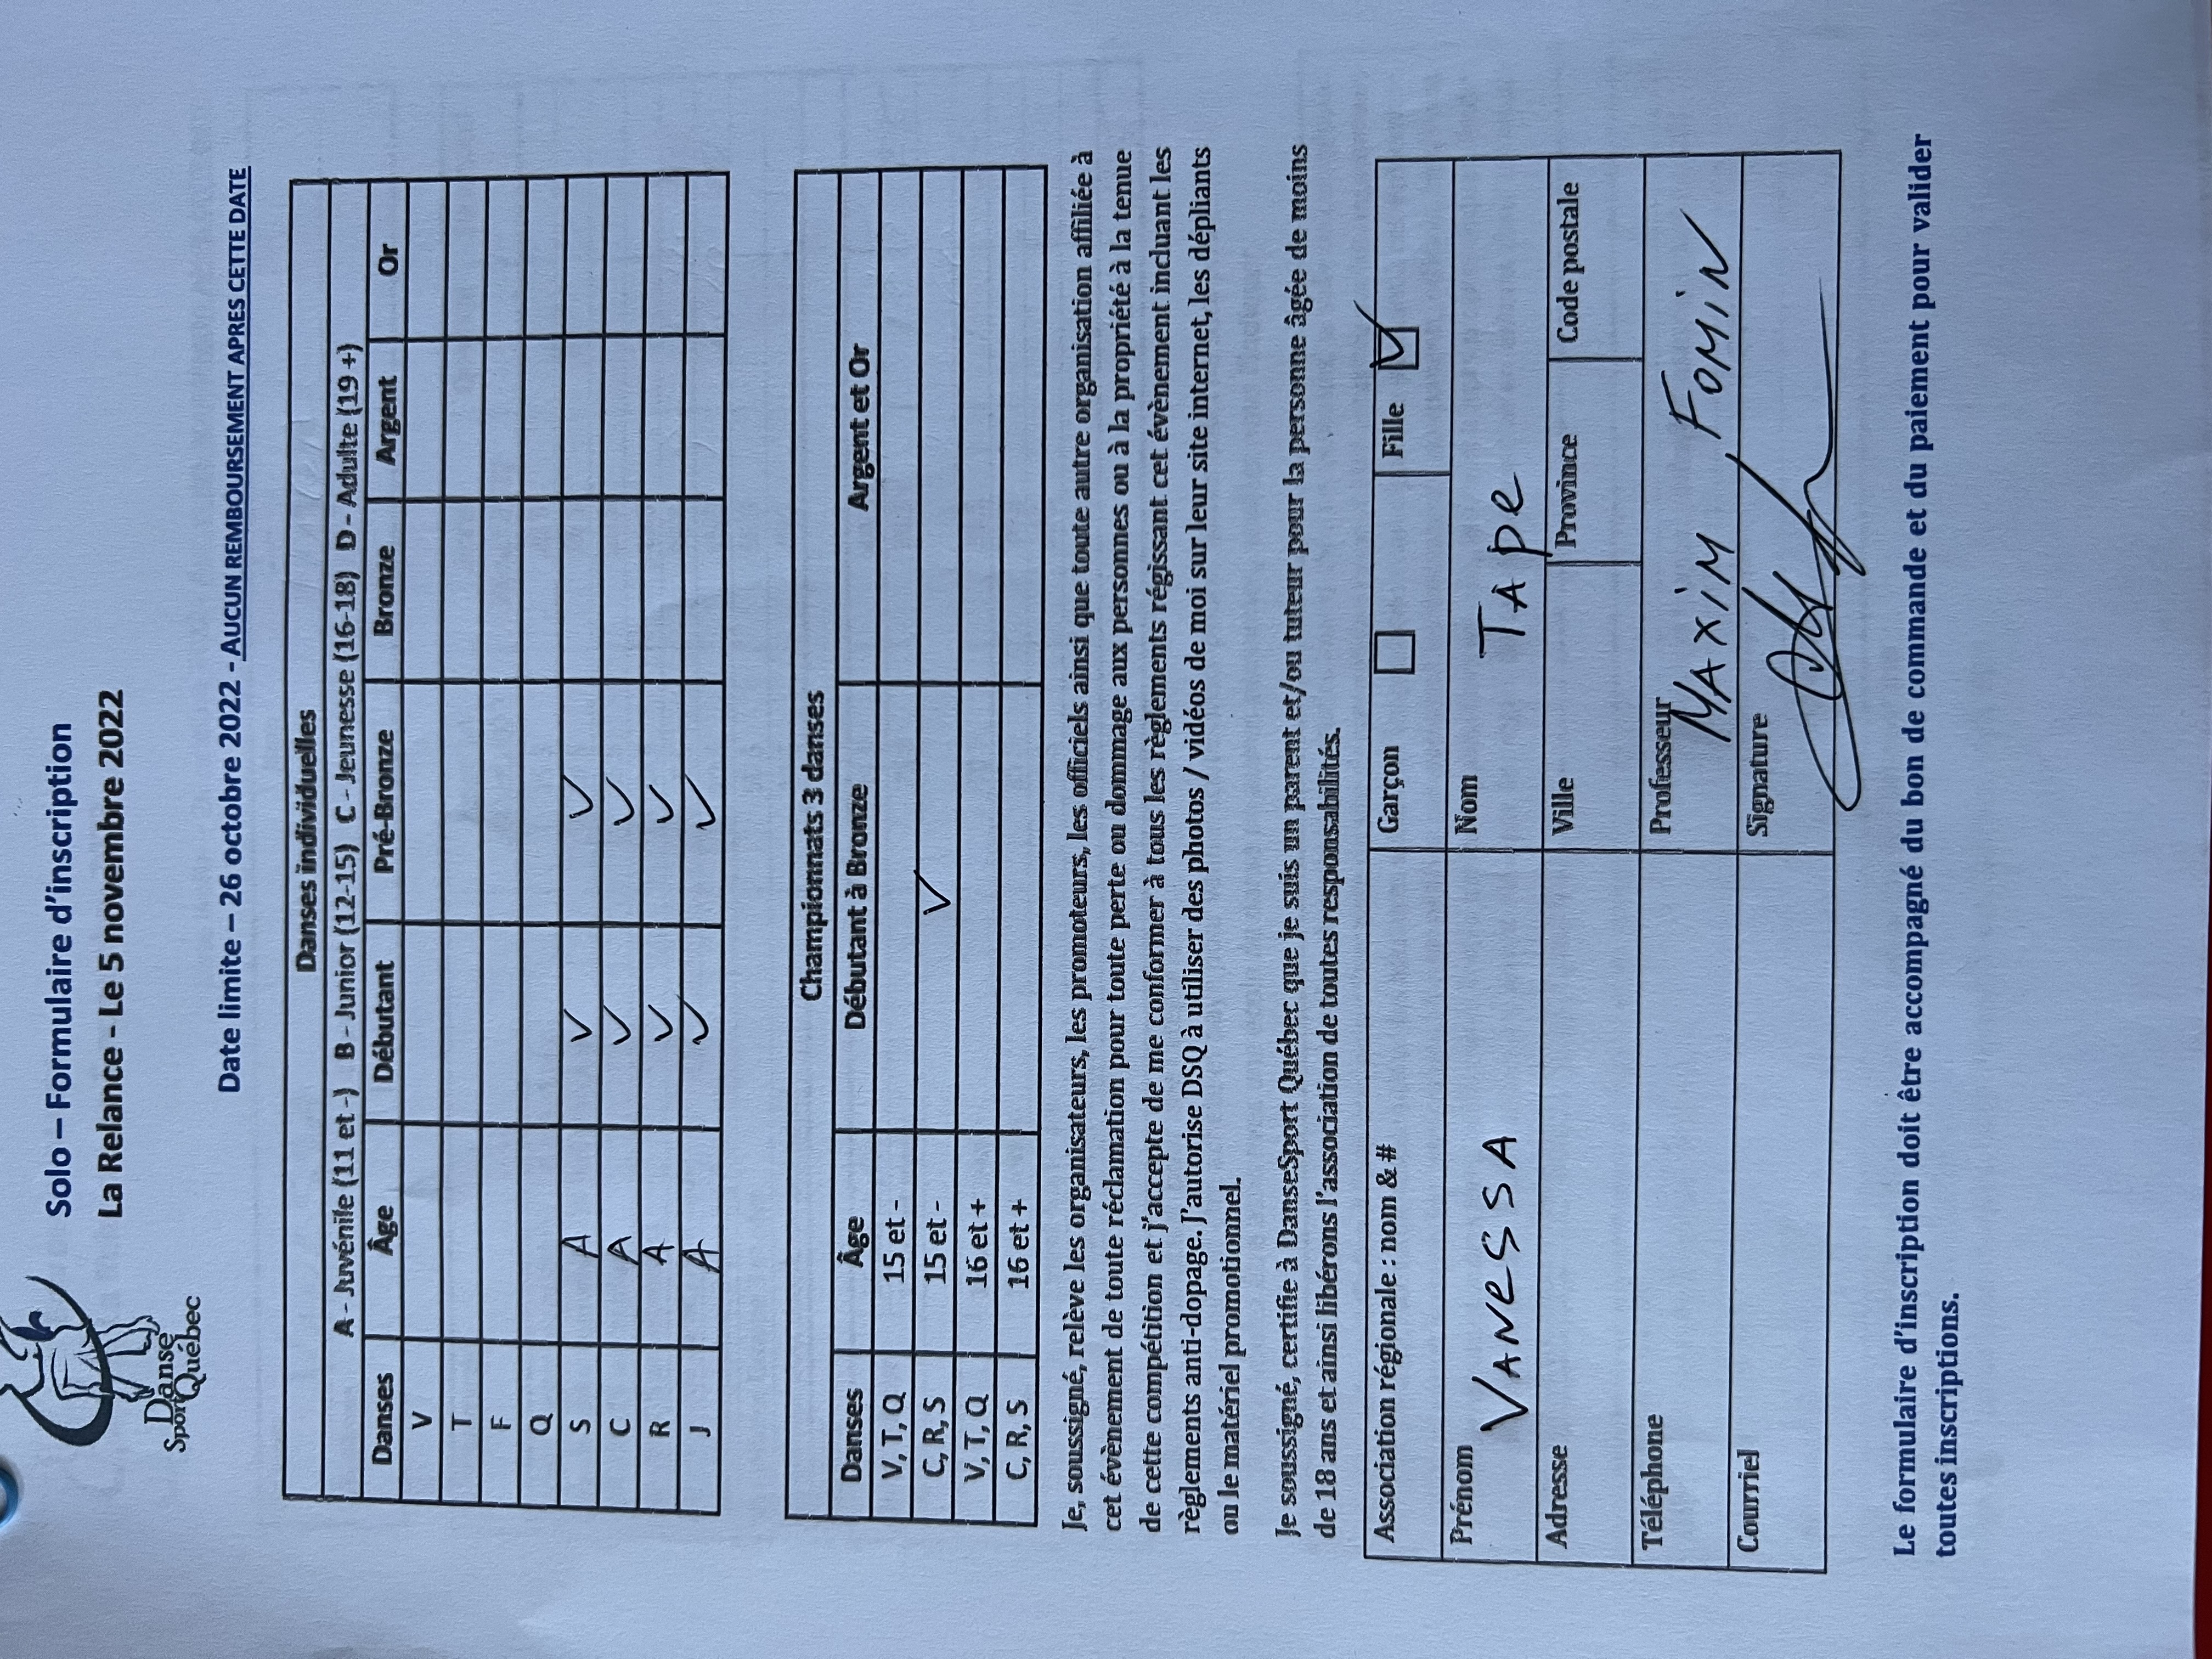 Danse
Sport Québec
Solo – Formulaire d'inscription
La Relance - Le 5 novembre 2022
Date limite – 26 octobre 2022 - AUCUN REMBOURSEMENT APRES CETTE DATE
Danses individuelles
A - Juvénile (11 et -) B - Junior (12-15) C - Jeunesse (16-18) D - Adulte (19 +)
Danses Âge Débutant Pré-Bronze Bronze Argent Or
V
T
F
Q
S A ✓ ✓
C A ✓ ✓
R A ✓ ✓
J A ✓ ✓
Championnats 3 danses
Danses Âge Débutant à Bronze Argent et Or
V, T, Q 15 et -
C, R, S 15 et - ✓
V, T, Q 16 et +
C, R, S 16 et +
Je, soussigné, relève les organisateurs, les promoteurs, les officiels ainsi que toute autre organisation affiliée à
cet évènement de toute réclamation pour toute perte ou dommage aux personnes ou à la propriété à la tenue
de cette compétition et j'accepte de me conformer à tous les règlements régissant cet évènement incluant les
règlements anti-dopage. J'autorise DSQ à utiliser des photos / vidéos de moi sur leur site internet, les dépliants
ou le matériel promotionnel.
Je soussigné, certifie à DanseSport Québec que je suis un parent et/ou tuteur pour la personne âgée de moins
de 18 ans et ainsi libérons l'association de toutes responsabilités.
Association régionale : nom & # Garçon ☐ Fille ☑
Prénom VANESSA Nom TAPE
Adresse Ville Province Code postale
Téléphone Professeur MAXIM FOMIN
Courriel Signature
Le formulaire d'inscription doit être accompagné du bon de commande et du paiement pour valider
toutes inscriptions.